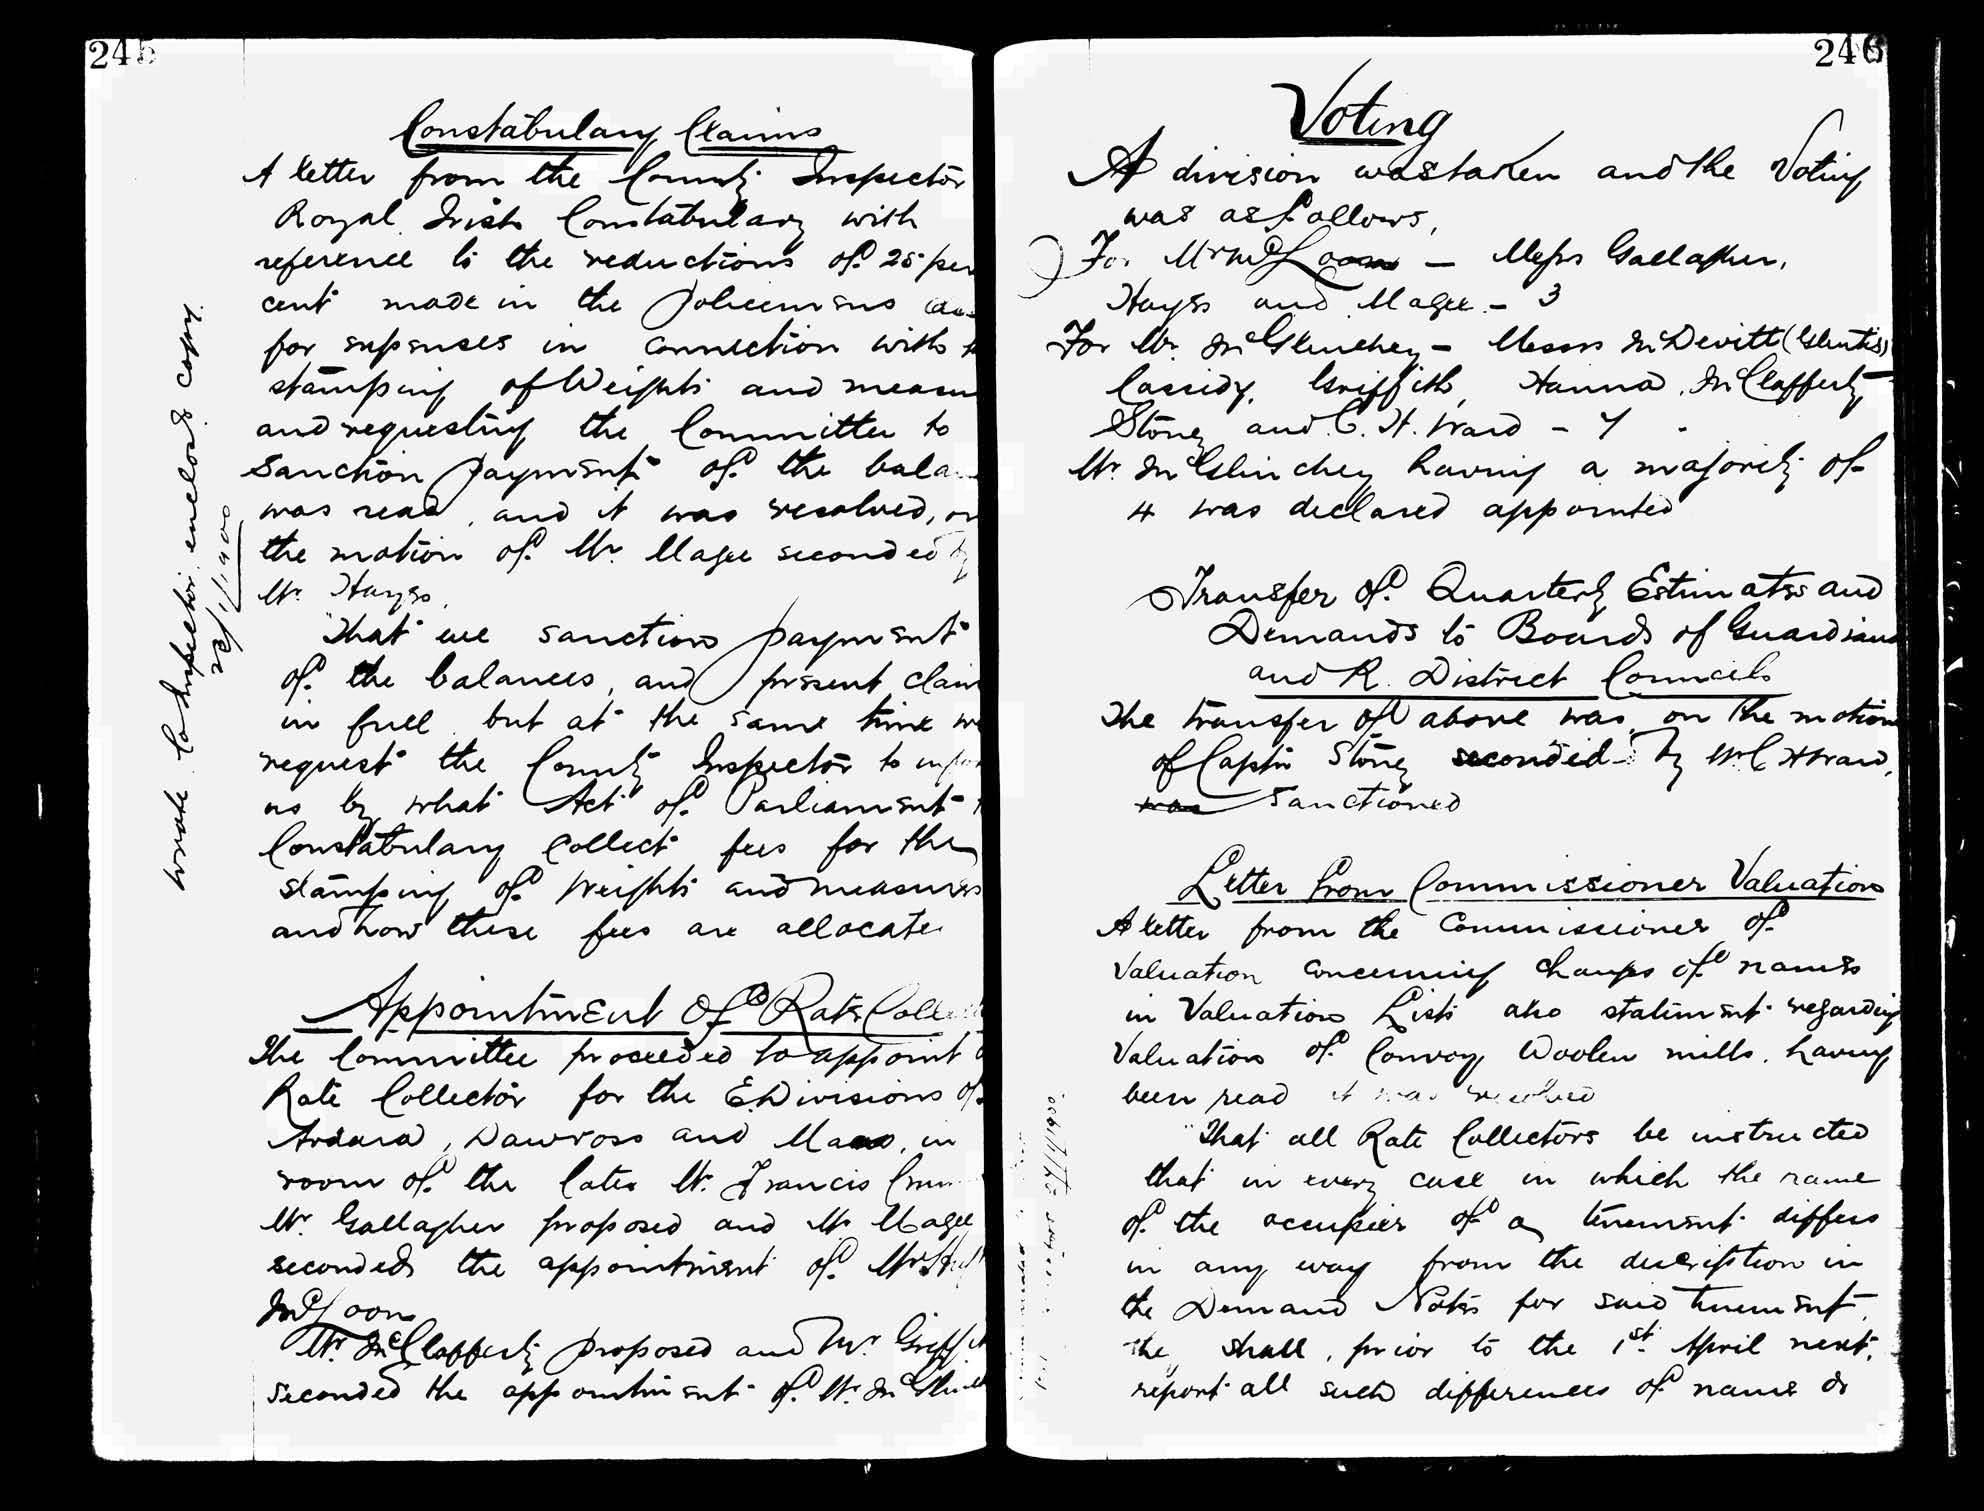 245
Constabulary Claims
A letter from the County Inspector
Royal Irish Constabulary with
reference to the reductions of 25 per
cent made in the policemens
for expenses in connection with
stamping of Weights and measu
and requesting the Committee to
sanction payment of the bala
was read, and it was resolved, on
the motion of Mr. Magee seconded by
Mr. Hayes.
"That we sanction payment
of the balances, and present claim
in full but at the same time we
request the County Inspector to infor
us by what Act of Parliament
Constabulary collect fees for the
stamping of Weights and measures
and how these fees are allocate
wrote Co Inspector, enclosed copy.
1/1900
Appointment of Rate Colle
The Committee proceeded to appoint a
Rate Collector for the E.Divisions of
Ardara, Dawross and Maas, in
room of the late Mr. Francis
Mr Gallagher proposed and Mr Magee
seconded the appointment of Mr
McLoon
Mr. McClafferty proposed and Mr. Griffit
seconded the appointment of Mr. McGlinch
246
Voting
A division was taken and the Voting
was as follows,
For Mr McLoone — Messrs Gallagher,
Hayes and Magee - 3
For Mr. McGlinchey - Messrs McDevitt (Glenties)
Cassidy, Griffith, Hanna, McClafferty
Stoney and C. H. Ward - 7
Mr. McGlinchey having a majority of
4 was declared appointed
Transfer of Quarterly Estimates and
Demands to Boards of Guardians
and R. District Councils
The transfer of above was, on the motion
of Captn Stoney seconded by Mr C H Ward,
was sanctioned
Letter from Commissioner Valuation
A letter from the Commissioner of
Valuation concerning changes of names
in Valuation Lists also statement regarding
Valuation of Convoy Woolen mills, having
been read it was resolved
"That all Rate Collectors be instructed
that in every case in which the name
of the occupier of a tenement differs
in any way from the description in
the Demand Notes for said tenement,
he shall, prior to the 1st April next,
report all such differences of name or